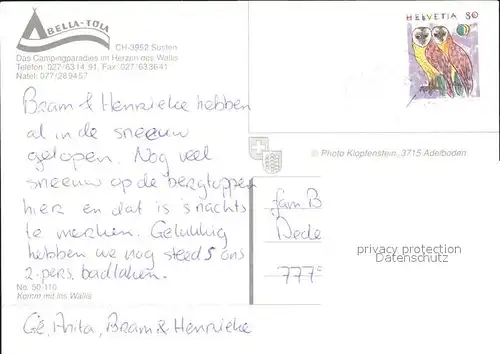 ABELLA-TOLA
CH-3952 Susten
Das Campingparadies im Herzen des Wallis
Telefon: 027·63 14 91, Fax 027·63 36 41
Natel: 077/28 94 57
HELVETIA 80
Bram & Henrieke hebben
al in de sneeuw
gelopen. Nog veel
sneeuw op de bergtoppen
hier en dat is 's nachts
te merken. Gelukkig
hebben we nog steeds ons
2-pers. badlaken.
No. 50-110
Komm mit ins Wallis
Ge, Anita, Bram & Henrieke
© Photo Klopfenstein, 3715 Adelboden
fam. B
Dede
777
privacy protection
Datenschutz